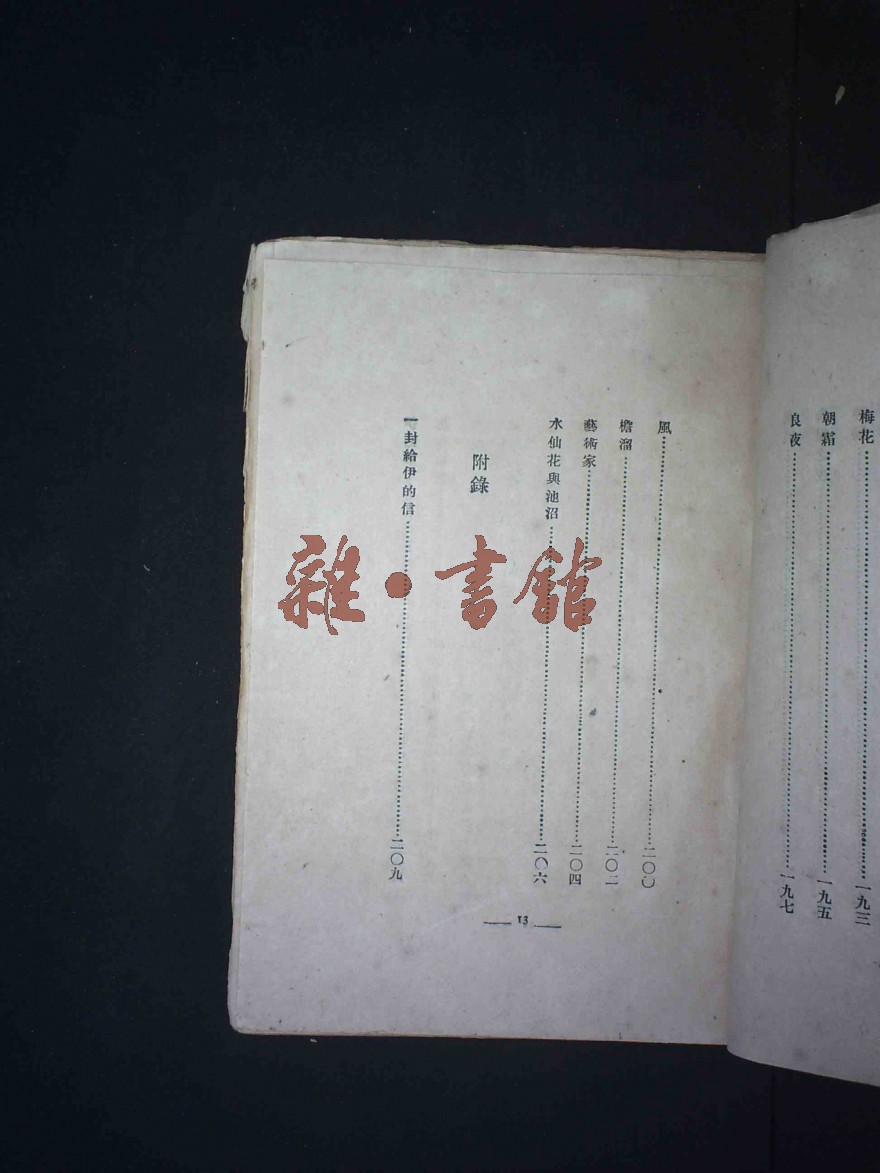 梅花……一九三
朝霜……一九五
良夜……一九七
風……二〇〇
檐溜……二〇二
藝術家……二〇四
水仙花與池沼……二〇六
附錄
一封給伊的信……二〇九
13
雜·書館